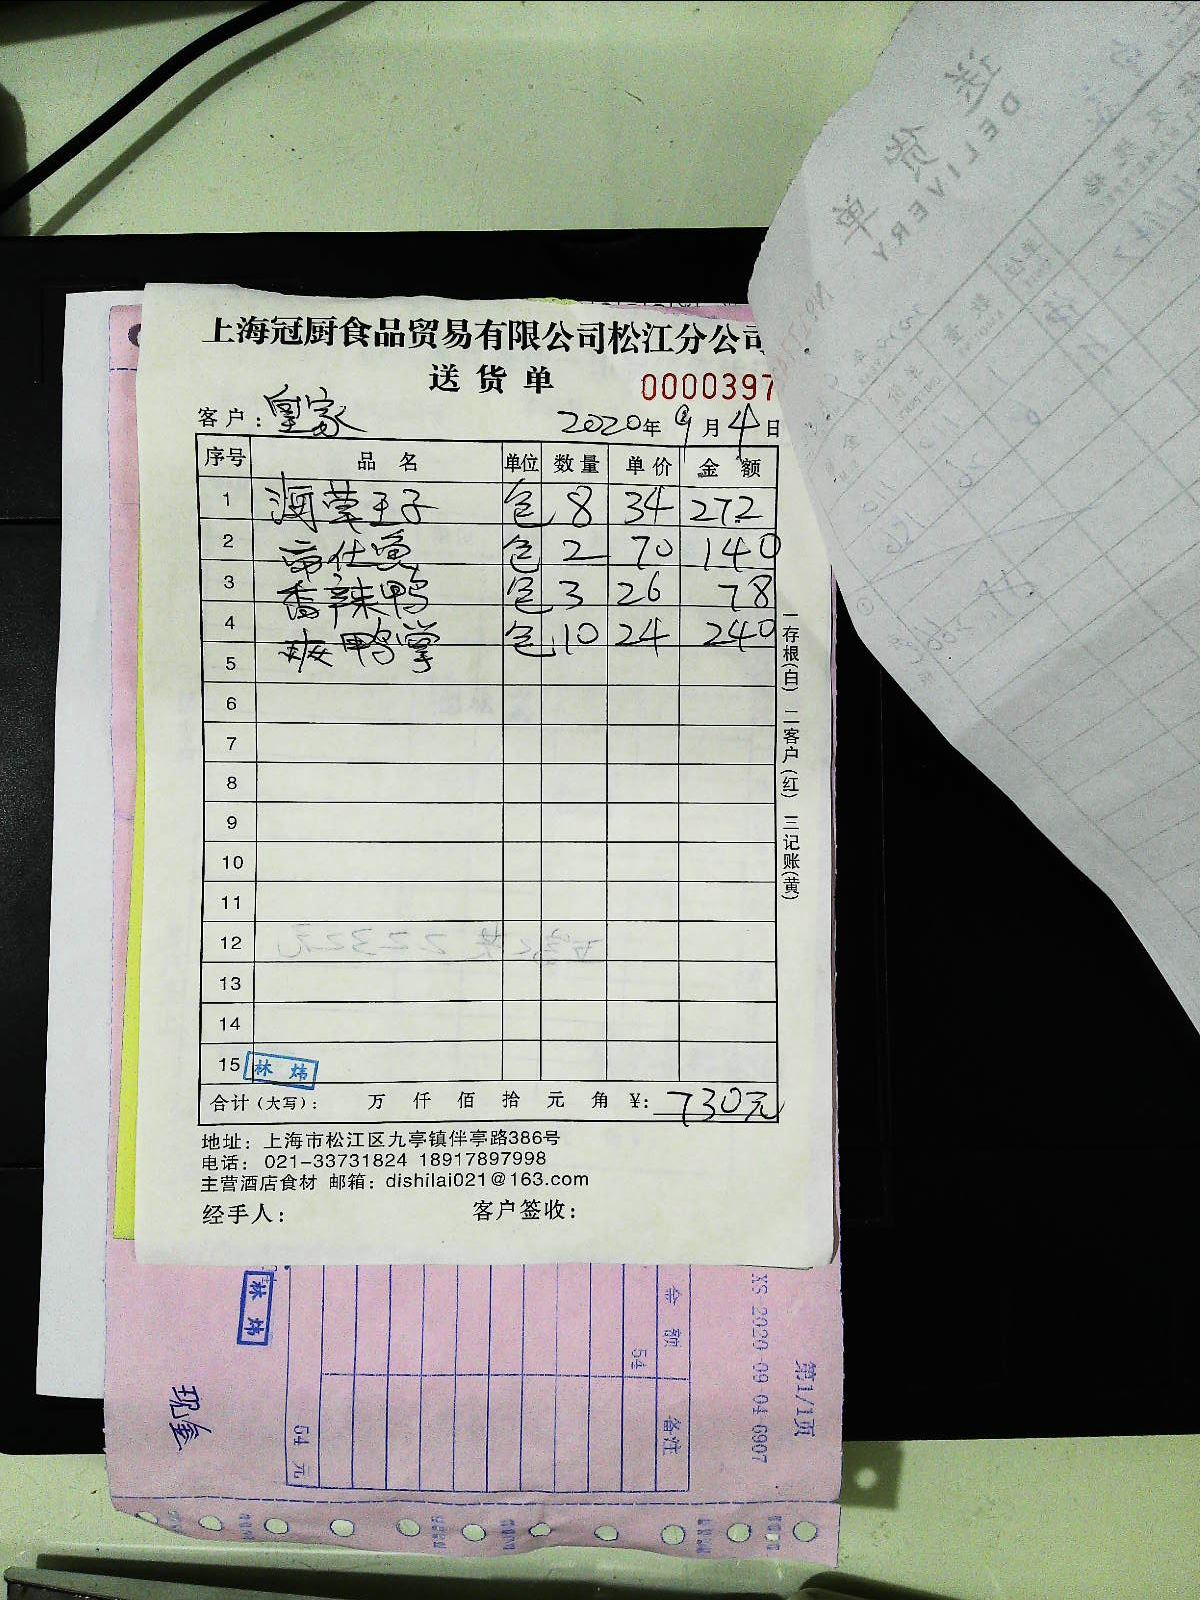 上海冠厨食品贸易有限公司松江分公司
送货单
0000397
客户：皇家 2020年9月4日
序号 品名 单位 数量 单价 金额
1 海草王子 包 8 34 272
2 帝仕鱼 包 2 70 140
3 香辣鸭 包 3 26 78
4 爽鸭掌 包 10 24 240
5
6
7
8
9
10
11
12
13
14
15 林炜
合计（大写）： 万 仟 佰 拾 元 角 ￥：730元
一存根(白) 二客户(红) 三记账(黄)
地址：上海市松江区九亭镇伴亭路386号
电话：021-33731824 18917897998
主营酒店食材 邮箱：dishilai021@163.com
经手人： 客户签收：
送货单
DELIVERY
第1/1页
XS-2020-09-04-6907
金额 备注
54
54 元
林炜
现金